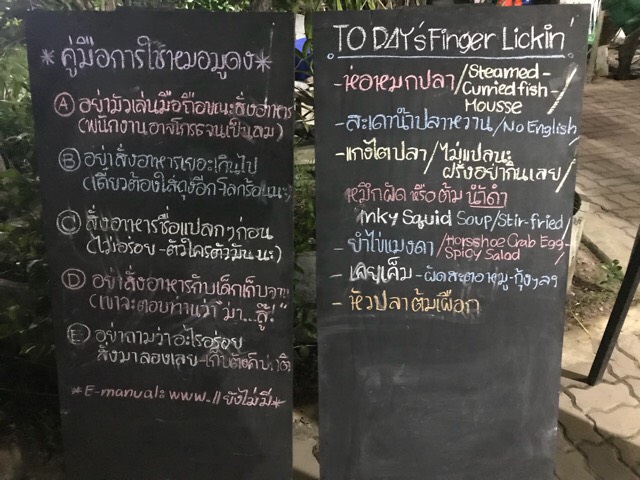 *คู่มือการใช้หมอมูดง*
A อย่ามัวเล่นมือถือขณะสั่งอาหาร
(พนักงานอาจโกรธจนเป็นลม)
B อย่าสั่งอาหารเยอะเกินไป
(เดี๋ยวต้องใส่ถุงอีก โลกร้อนนะ)
C สั่งอาหารชื่อแปลกๆก่อน
(ไม่อร่อย-ตัวใครตัวมันนะ)
D อย่าสั่งอาหารกับเด็กเก็บจาน
(เขาจะตอบท่านว่า "มา...สู้!"
E อย่าถามว่าอะไรอร่อย
สั่งมาลองเลย-เก็บตังค์ปกติ
*E-manual: www.//ยังไม่มี*
TO DAY's Finger Lickin'
-ห่อหมกปลา/Steamed-
Curried fish-
Mousse
-สะเดาน้ำปลาหวาน/No English/
-แกงไตปลา/ไม่แปลนะ
ฝรั่งอย่ากินเลย/
-หมึกผัด หรือต้ม น้ำดำ
Inky Squid Soup/Stir-fried/
-ยำไข่แมงดา/Horseshoe Crab Egg-
Spicy Salad
-เคยเค็ม-ผัดสะตอหมู-กุ้งฯลฯ
-หัวปลาต้มเผือก